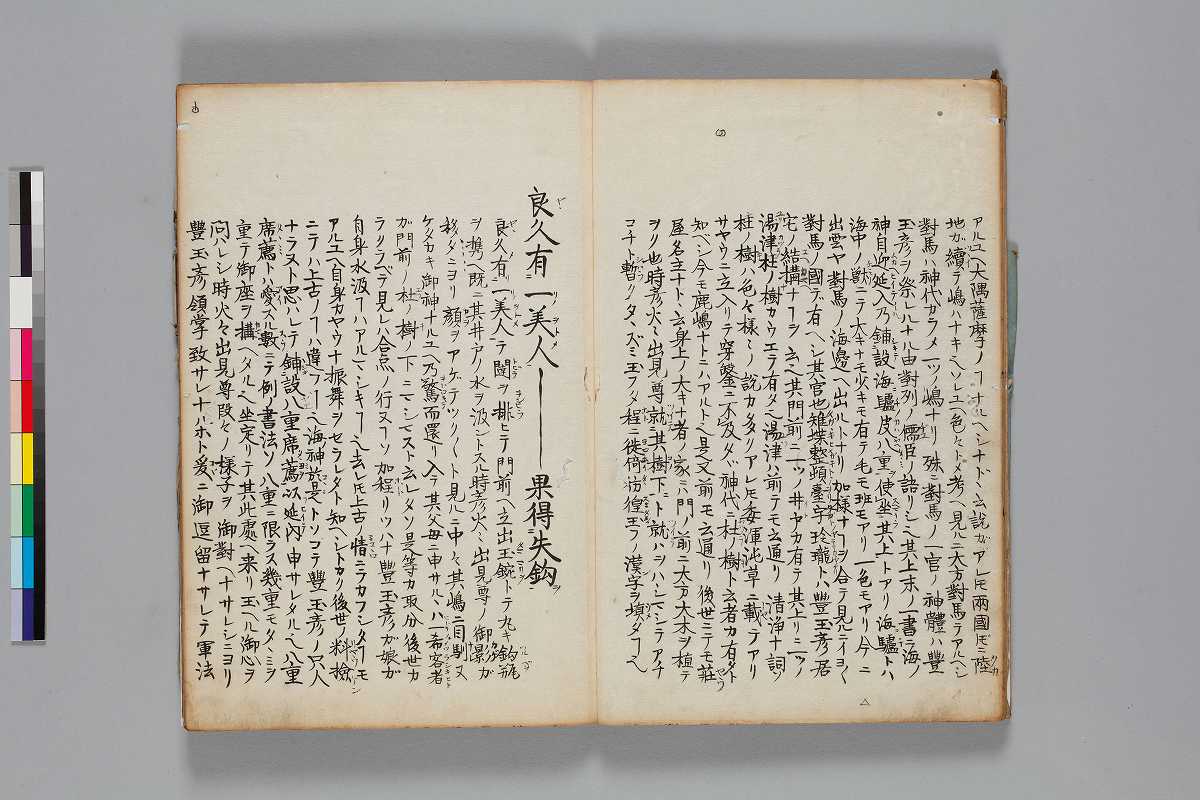 アルユヘ大隅薩摩ノ﹁ナルヘシナト丶云説ガアレ𪜈兩國𪜈ニ陸
地ガ續テ嶋ハナキヘソレユヘ色々トメ考ヘ見ルニ大方對馬テアルヘシ
對馬ハ神代カラメ一ツノ嶋ナリ殊ニ對馬ノ一宮ノ神體ハ豐
玉彦ヲ祭ルナル由對列ノ儒臣ノ語リシ其上末ノ一書ニ海ノ
神自迎延入乃鋪設海驢皮八重使坐其上トアリ海驢トハ
海中ノ獸ニテ大キナモ少キモ有テ毛モ班モアリ一色モアリ今ニ
出雲ヤ對馬ノ海邊ヘ出ルトナリ加様ナ﹁ヲ合テ見ルニイヨ〱
對馬ノ國テ有ヘシ其宮也雉堞整頓臺宇玲瓏ト豐玉彦居
宅ノ結搆ナ﹁ヲ云其門前ニ一ツノ井ヤカ有テ其上リニ一ツノ
湯津杜ノ樹カウエテ有タ湯津ハ前テモ云通リ清浄ナ詞ソ
杜ノ樹ハ色々様々ノ説カ多クアレ𪜈委渾沌草ニ載テアリ
サヤウニ立入リテ穿鑿ニ不及タヾ神代ニ杜ノ樹ト云者カ有タト
知ヘシ今モ鹿嶋ナトニハアルトヘ是又前モ云通リ後世ニテモ莊
屋名主ナト丶云身上ノ大キナ者ノ家ニハ門ノ前ニ大方大木ヲ植テ
ヲリ也時彦火々出見尊就其樹下ニト就ハヲハシマシテアチ
コチト暫クノタヽズミ玉フタ程ニ徙倚彷徨玉フノ漢字ヲ塡タ﹁ヘ
良久有一美人――果得失鈎
良久有一美人テ闥ヲ排ヒテ門前ヘ立出玉鋺トテ丸キ
ヲ携ヘ既ニ其井戸ノ水ヲ汲ントスル時彦火々出見尊ノ御影ガ
移タニヨリ顔ヲアゲテツク〱ト見ルニ中々其嶋ニ目馴ヌ
ケタカキ御神ナユヘ乃驚而還リ入テ其父母ニ申サルヽハ一希客者
ガ門前ノ杜ノ樹ノ下ニマシマスト云レタソ是等カ取分後世カ
ラクラベテ見レハ合点ノ行ヌ﹁ソ加程リツハナ豐玉彦ガ娘ガ
自身水汲﹁ハアルマシキ﹁ヘ去レ𪜈上古ノ情ニテカフシタ﹁モ
アルユヘ自身カヤウナ振舞ヲセラレタト知ヘシトカク後世ノ料撿
ニテハ上古ノ﹁ハ違フ﹁ヘ海神於是トソコテ豐玉彦ノ只人
ナラヌト思ハレテ鋪設八重席薦以延内申サレタルヘ八重
席薦トハ愛スル數ニテ例ノ書法ソ八重ニ限ラス幾重モタヽミラ
重テ御座ヲ搆ヘタルヘ坐定リテ其此處ヘ来リ玉ヘル御心ヲ
問ハレシ時火々出見尊段々ノ様子ヲ御對ヘナサレシニヨリ
豐玉彦領掌致サレナルホト爰ニ御逗留ナサレテ軍法